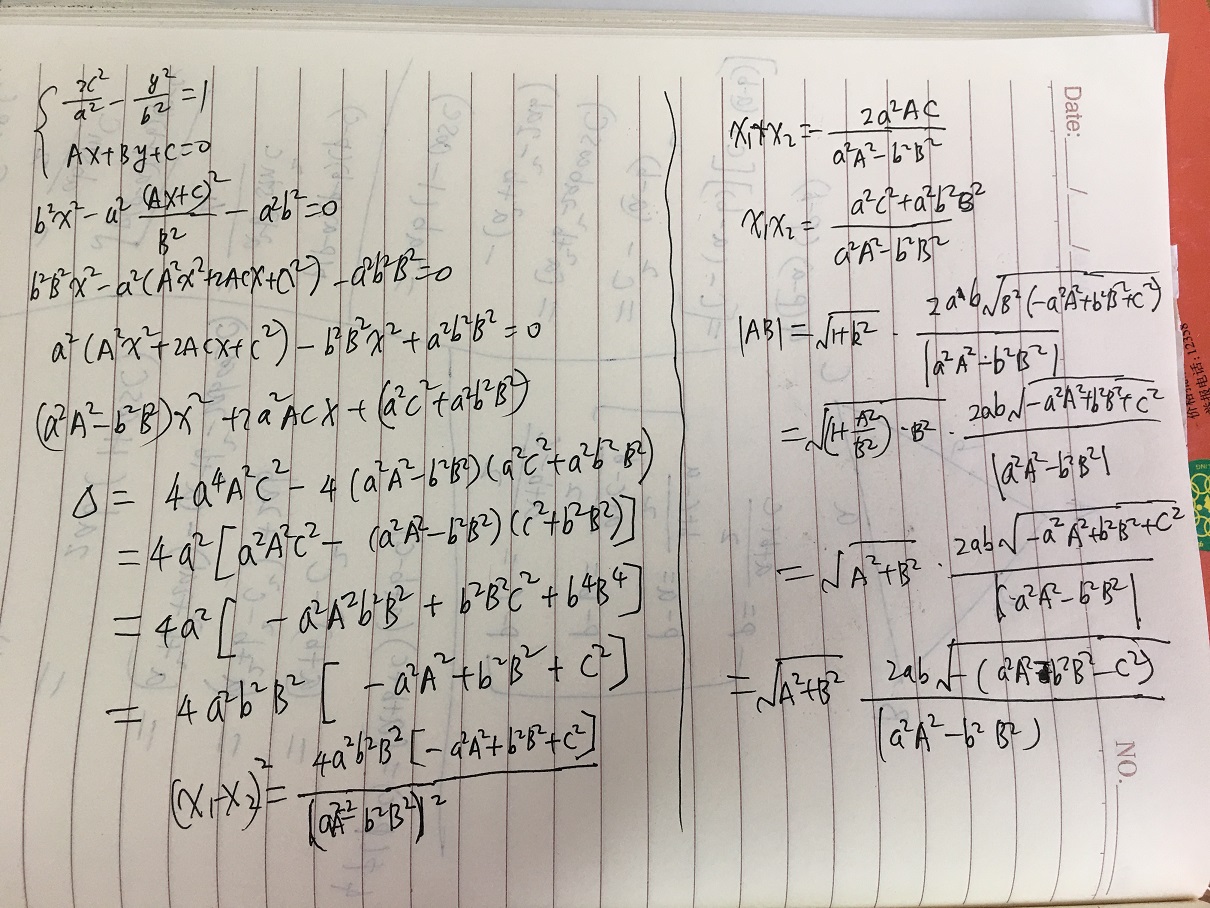 { x²/a² - y²/b² = 1
Ax+By+C=0
b²x² - a² (Ax+C)²/B² - a²b² = 0
b²B²x² - a²(A²x²+2ACx+C²) - a²b²B² = 0
a²(A²x²+2ACx+C²) - b²B²x² + a²b²B² = 0
(a²A²-b²B²)x² + 2a²ACx + (a²C²+a²b²B²)
Δ = 4a⁴A²C² - 4(a²A²-b²B²)(a²C²+a²b²B²)
= 4a²[a²A²C² - (a²A²-b²B²)(C²+b²B²)]
= 4a²[ - a²A²b²B² + b²B²C² + b⁴B⁴]
= 4a²b²B² [ -a²A² + b²B² + C²]
(x₁-x₂)² = 4a²b²B²[-a²A²+b²B²+C²] / (a²A²-b²B²)²
x₁+x₂ = - 2a²AC / a²A²-b²B²
x₁x₂ = a²C²+a²b²B² / a²A²-b²B²
|AB| = √1+k² · 2ab√B²(-a²A²+b²B²+C²) / |a²A²-b²B²|
= √(1+A²/B²)·B² · 2ab√-a²A²+b²B²+C² / |a²A²-b²B²|
= √A²+B² · 2ab√-a²A²+b²B²+C² / |a²A²-b²B²|
= √A²+B² 2ab√-(a²A²-b²B²-C²) / |a²A²-b²B²)
Date: / /
NO.